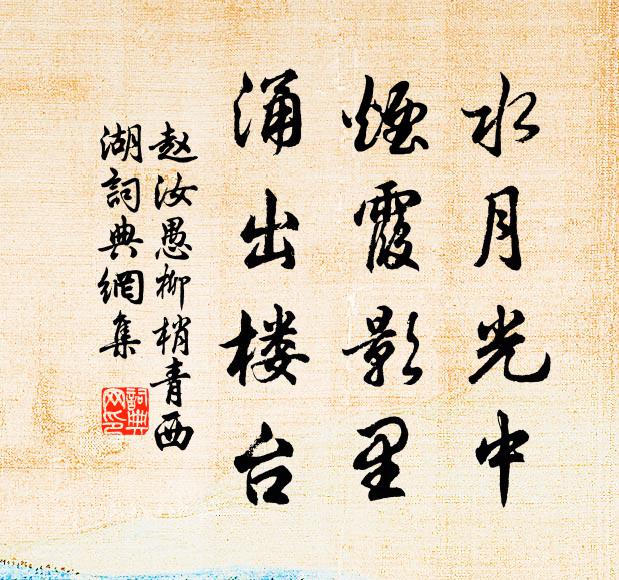 水月光中
煙霞影里
涌出楼台
赵汝愚柳梢青西
湖詞典網集
詞典
网印